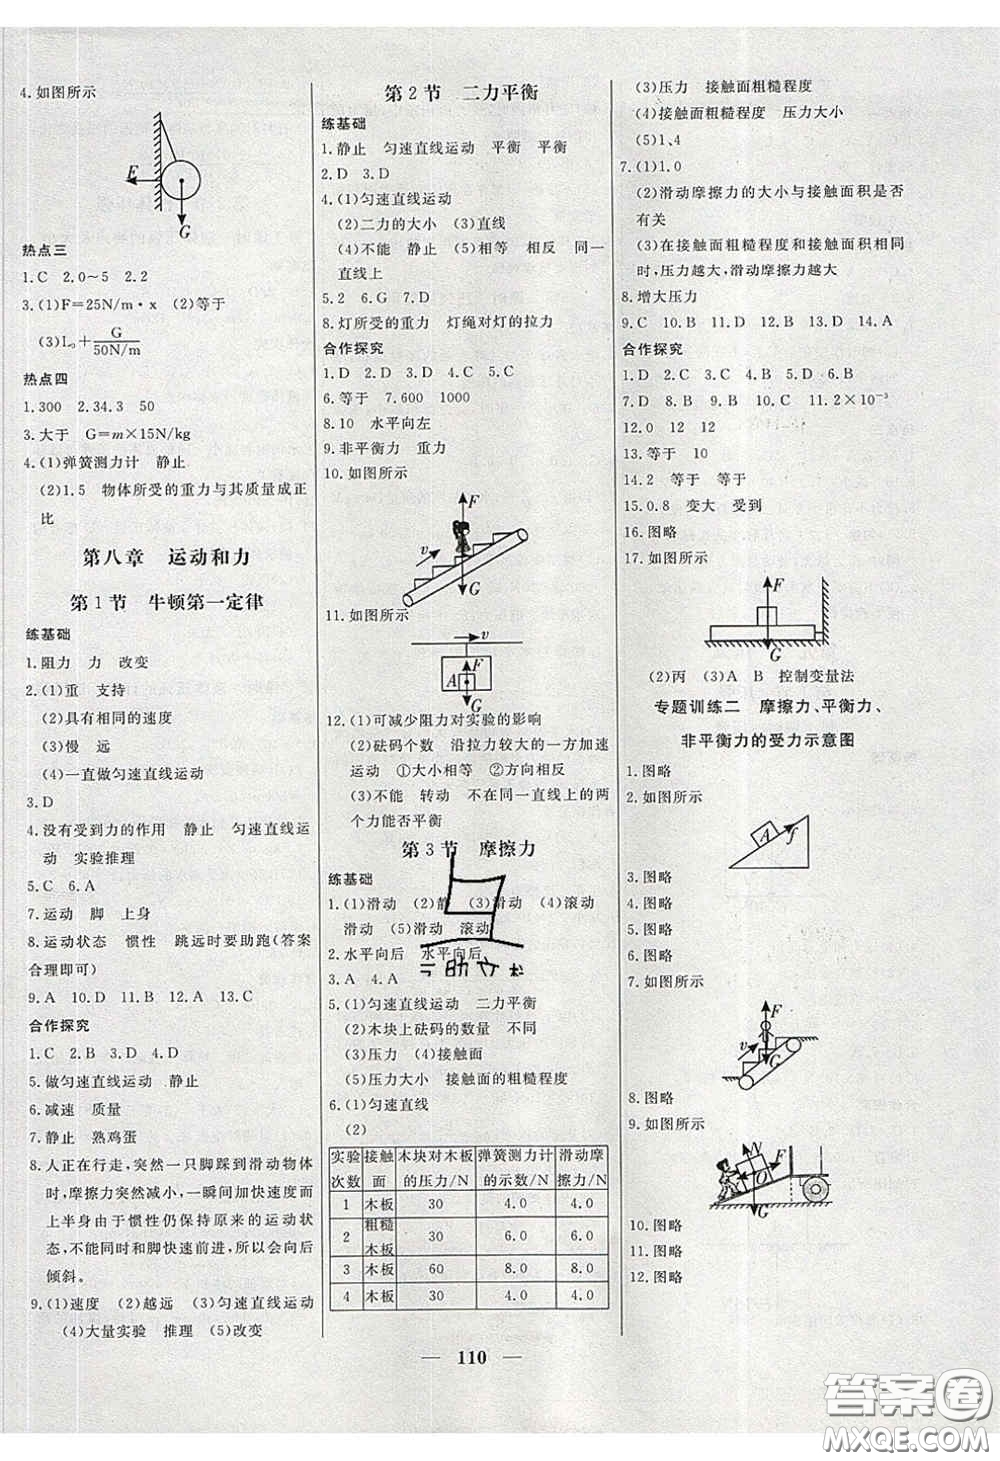 4.如图所示
F
G
热点三
1.C 2.0~5 2.2
3.(1)F=25N/m·x (2)等于
(3)L₀+G/50N/m
热点四
1.300 2.34.3 50
3.大于 G=m×15N/kg
4.(1)弹簧测力计 静止
(2)1.5 物体所受的重力与其质量成正
比
第八章 运动和力
第1节 牛顿第一定律
练基础
1.阻力 力 改变
2.(1)重 支持
(2)具有相同的速度
(3)慢 远
(4)一直做匀速直线运动
3.D
4.没有受到力的作用 静止 匀速直线运
动 实验推理
5.C 6.A
7.运动 脚 上身
8.运动状态 惯性 跳远时要助跑(答案
合理即可)
9.A 10.D 11.D 12.A 13.C
合作探究
1.C 2.B 3.D 4.D
5.做匀速直线运动 静止
6.减速 质量
7.静止 熟鸡蛋
8.人正在行走,突然一只脚踩到滑动物体
时,摩擦力突然减小,一瞬间加快速度而
上半身由于惯性仍保持原来的运动状
态,不能同时和脚快速前进,所以会向后
倾斜。
9.(1)速度 (2)越远 (3)匀速直线运动
(4)大量实验 推理 (5)改变
第2节 二力平衡
练基础
1.静止 匀速直线运动 平衡 平衡
2.D 3.D
4.(1)匀速直线运动
(2)二力的大小 (3)直线
(4)不能 静止 (5)相等 相反 同一
直线上
5.2 6.G 7.D
8.灯所受的重力 灯绳对灯的拉力
合作探究
1.D 2.D 3.D 4.C 5.C
6.等于 7.600 1000
8.10 水平向左
9.非平衡力 重力
10.如图所示
F
v
G
11.如图所示
v
F
A
G
12.(1)可减少阻力对实验的影响
(2)砝码个数 沿拉力较大的一方加速
运动 ①大小相等 ②方向相反
(3)不能 转动 不在同一直线上的两
个力能否平衡
第3节 摩擦力
练基础
1.(1)滑动 (2)静 (3)滑动 (4)滚动
滑动 (5)滑动 滚动
2.水平向后 水平向后
3.A 4.A
5.(1)匀速直线运动 二力平衡
(2)木块上砝码的数量 不同
(3)压力 (4)接触面
(5)压力大小 接触面的粗糙程度
6.(1)匀速直线
(2)
实验次数 接触面 木块对木板的压力/N 弹簧测力计的示数/N 滑动摩擦力/N
1 木板 30 4.0 4.0
2 粗糙木板 30 6.0 6.0
3 木板 60 8.0 8.0
4 木板 30 4.0 4.0
(3)压力 接触面粗糙程度
(4)接触面粗糙程度 压力大小
(5)1、4
7.(1)1.0
(2)滑动摩擦力的大小与接触面积是否
有关
(3)在接触面粗糙程度和接触面积相同
时,压力越大,滑动摩擦力越大
8.增大压力
9.C 10.B 11.D 12.D 13.D 14.A
合作探究
1.D 2.C 3.A 4.B 5.D 6.B
7.D 8.B 9.A 10.C 11.2×10⁻³
12.0 12 12
13.等于 10
14.2 等于 等于
15.0.8 变大 受到
16.图略
17.如图所示
F
G
(2)丙 (3)A B 控制变量法
专题训练二 摩擦力、平衡力、
非平衡力的受力示意图
1.图略
2.如图所示
A
f
3.图略
4.图略
5.图略
6.图略
7.如图所示
F
v
G
8.图略
9.如图所示
N
F
O
G
10.图略
11.图略
12.图略
110
答案圈
MXQE.COM